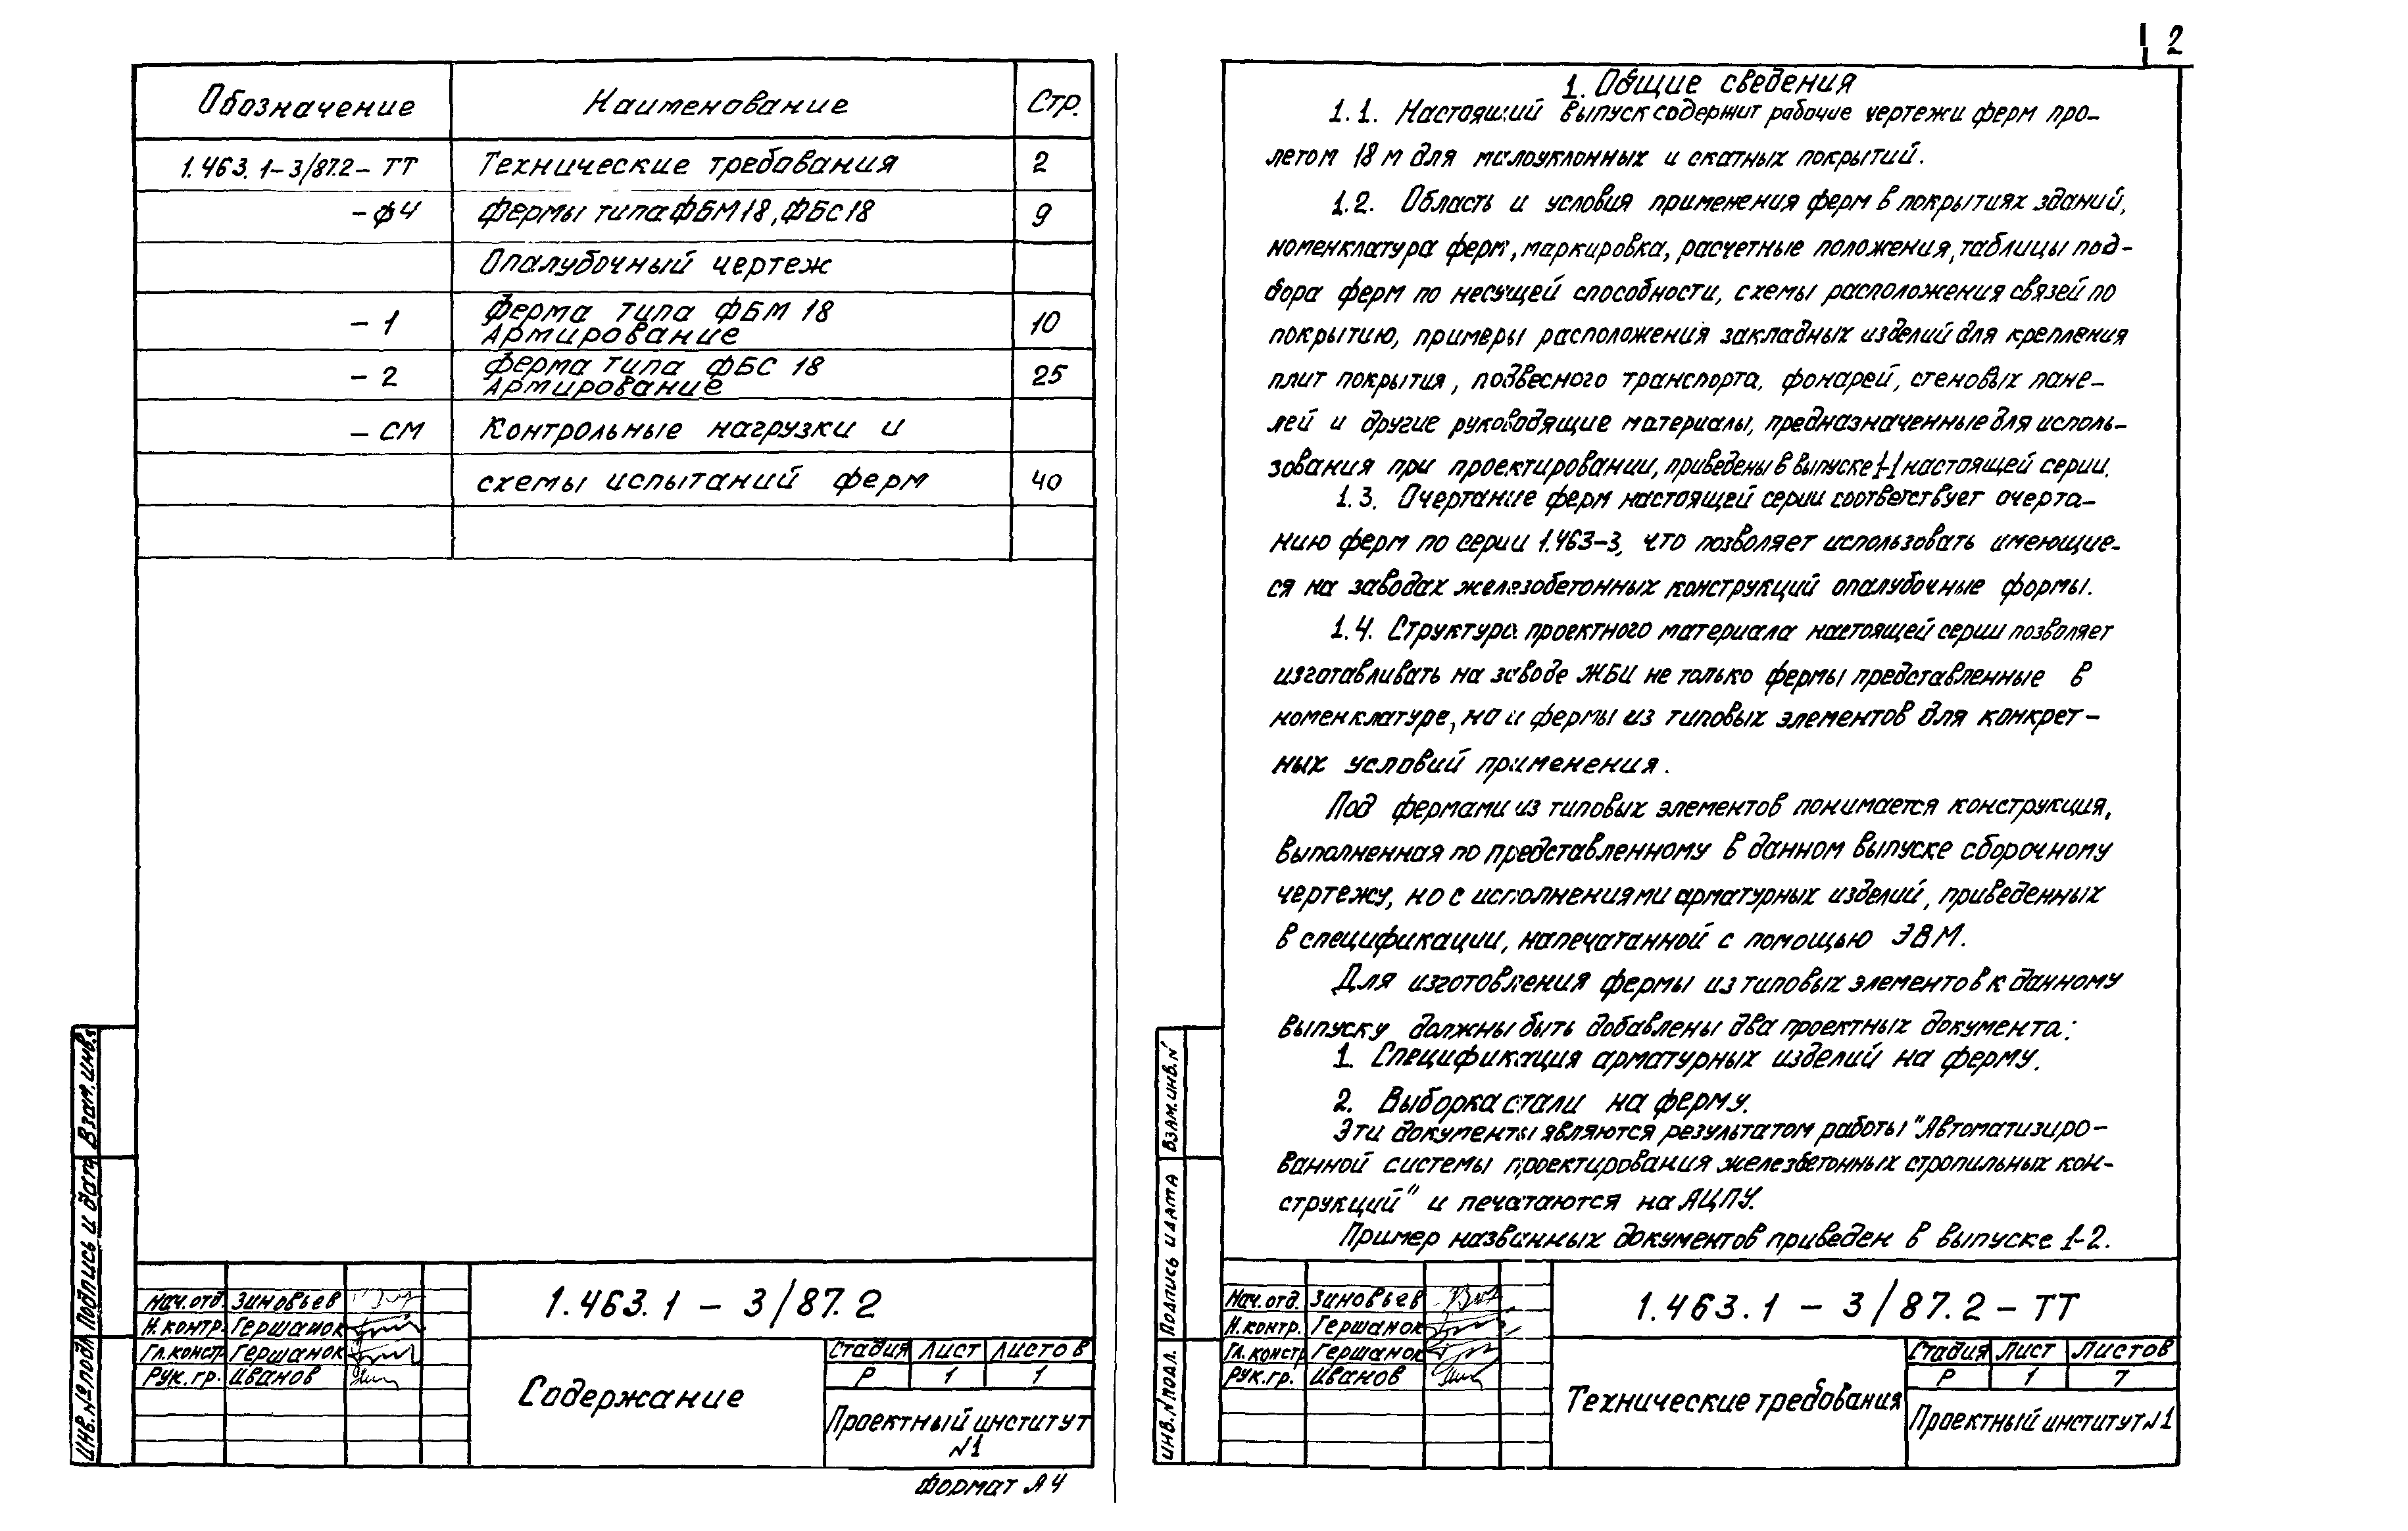 Обозначение Наименование Стр.
1.463.1-3/87.2-ТТ Технические требования 2
-ФЧ Фермы типа ФБМ18, ФБС18 9
Опалубочный чертеж
-1 Ферма типа ФБМ 18 10
Армирование
-2 Ферма типа ФБС 18 25
Армирование
-СМ Контрольные нагрузки и
схемы испытаний ферм 40
Взам.инв.
Подпись и дата
Инв.№подл.
1.463.1 - 3/87.2
Нач.отд. Зиновьев
Н.контр. Гершанок
Гл.констр Гершанок
Рук.гр. Иванов
Содержание
Стадия Лист Листов
Р 1 1
Проектный институт
№1
Формат А4
2
1. Общие сведения
1.1. Настоящий выпуск содержит рабочие чертежи ферм про-
летом 18 м для малоуклонных и скатных покрытий.
1.2. Область и условия применения ферм в покрытиях зданий,
номенклатура ферм, маркировка, расчетные положения, таблицы под-
бора ферм по несущей способности, схемы расположения связей по
покрытию, примеры расположения закладных изделий для крепления
плит покрытия, подвесного транспорта, фонарей, стеновых пане-
лей и другие руководящие материалы, предназначенные для исполь-
зования при проектировании, приведены в выпуске 1-1 настоящей серии.
1.3. Очертание ферм настоящей серии соответствует очерта-
нию ферм по серии 1.463-3, что позволяет использовать имеющие-
ся на заводах железобетонных конструкций опалубочные формы.
1.4. Структура проектного материала настоящей серии позволяет
изготавливать на заводе ЖБИ не только фермы представленные в
номенклатуре, но и фермы из типовых элементов для конкрет-
ных условий применения.
Под фермами из типовых элементов понимается конструкция,
выполненная по представленному в данном выпуске сборочному
чертежу, но с исполнениями арматурных изделий, приведенных
в спецификации, напечатанной с помощью ЭВМ.
Для изготовления фермы из типовых элементов к данному
выпуску должны быть добавлены два проектных документа:
1. Спецификация арматурных изделий на ферму.
2. Выборка стали на ферму.
Эти документы являются результатом работы "Автоматизиро-
ванной системы проектирования железбетонных стропильных кон-
струкций" и печатаются на АЦПУ.
Пример названных документов приведен в выпуске 1-2.
Взам.инв.№
Подпись и дата
Инв.№подл.
1.463.1 - 3/87.2 - ТТ
Нач.отд. Зиновьев
Н.контр. Гершанок
Гл.констр Гершанок
Рук.гр. Иванов
Технические требования
Стадия Лист Листов
Р 1 7
Проектный институт №1